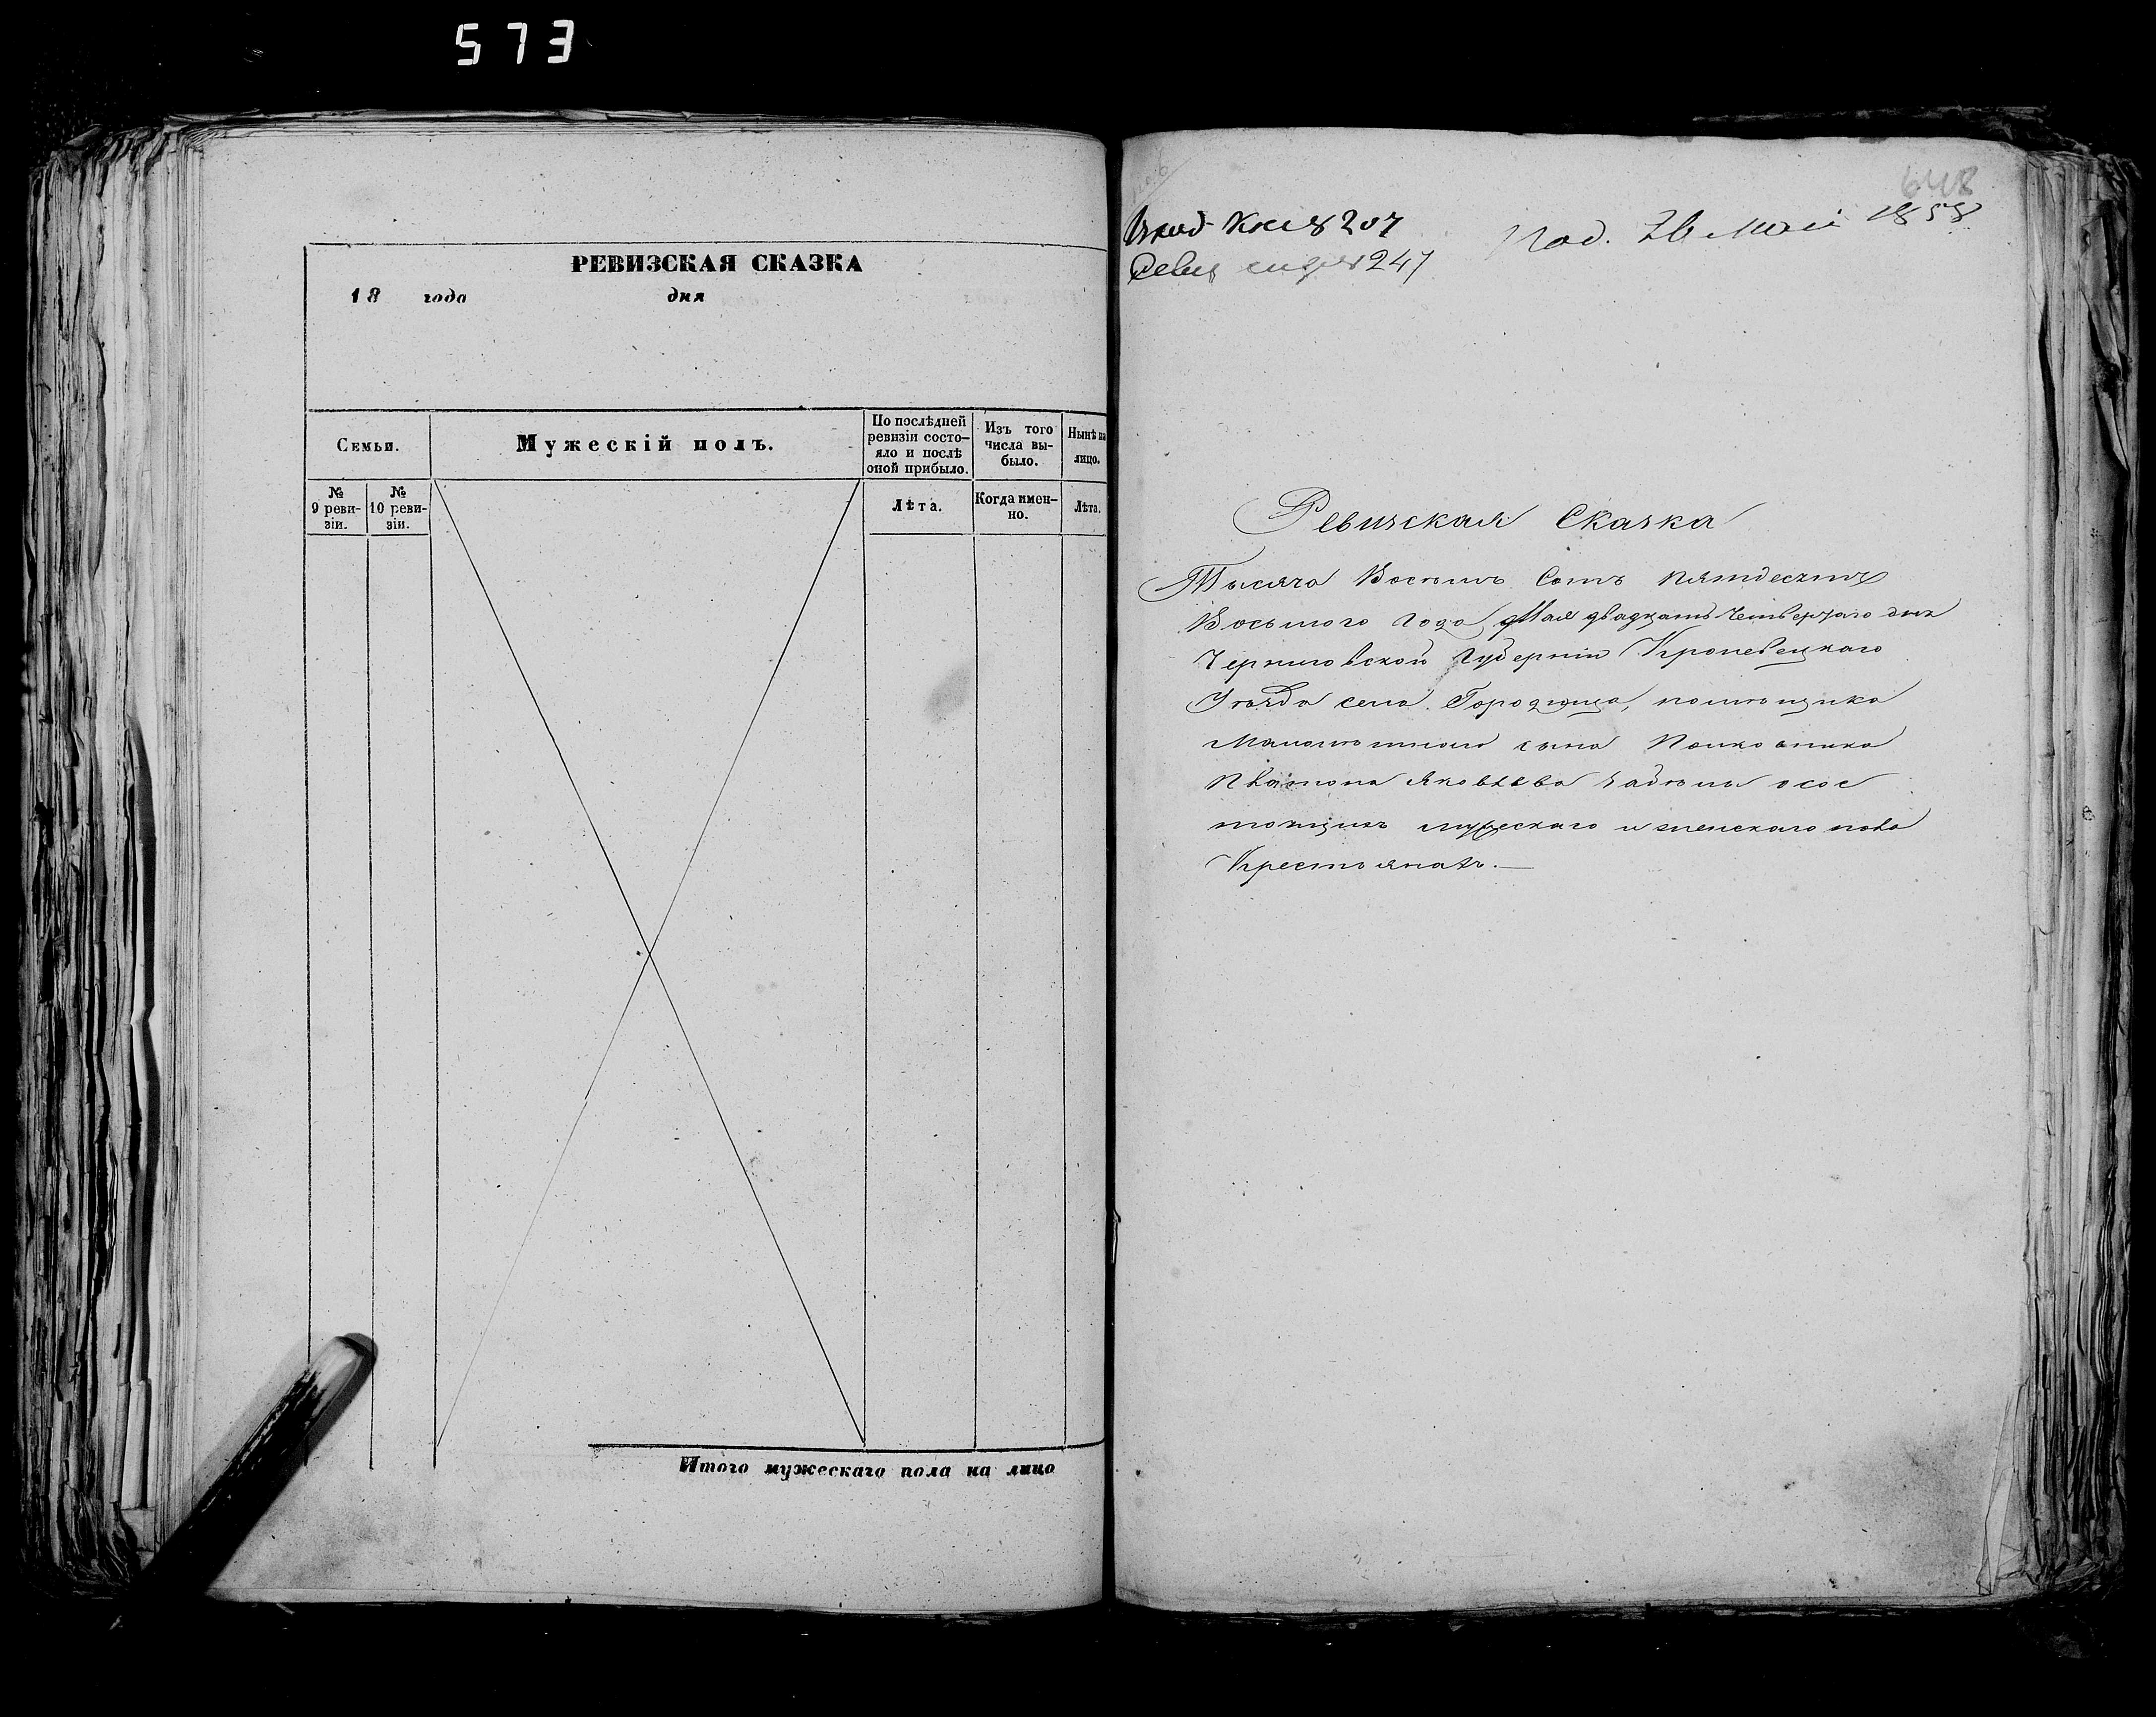 573
РЕВИЗСКАЯ СКАЗКА
18 года дня
Семьи.
Мужескій полъ.
По послѣдней ревизіи состо-
яло и послѣ
оной прибыло.
Изъ того
числа вы-
было.
Нынѣ на
лицо.
№
9 реви-
зіи.
№
10 реви-
зіи.
Лѣта.
Когда имен-
но.
Лѣта.
Итого мужескаго пола на лицо
648
№ 207
№ 247
Под. 26 Маія 1858
Ревизская Сказка
Тысяча Восемь Сотъ пятдесятъ
Восьмого Года Мая двадцать Четвертаго дня
Черниговской Губерніи Кролевецкаго
Уѣзда села Городища, помѣщика
Малолѣтнаго сына Полковника
Платона Яковлева Забѣлы осос
тоящихъ мужескаго и женскаго пола
Крестьянахъ.—